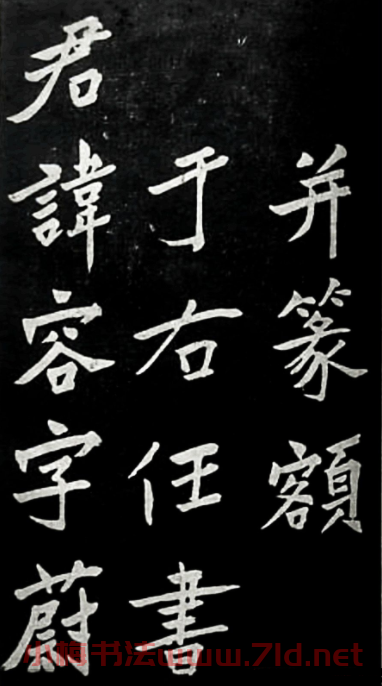 并篆額
于右任書
君諱容字蔚
书法www.7ld.net